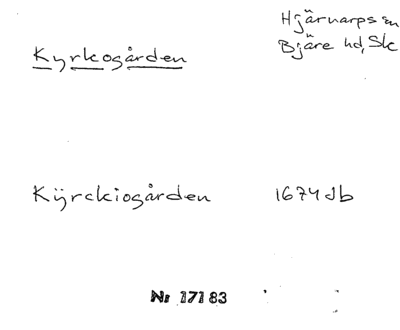 Hjärnarps sn
Kyrkogården
Bjäre hd, Sk
Kÿrckiogården 1674 Jb
Nr 17183